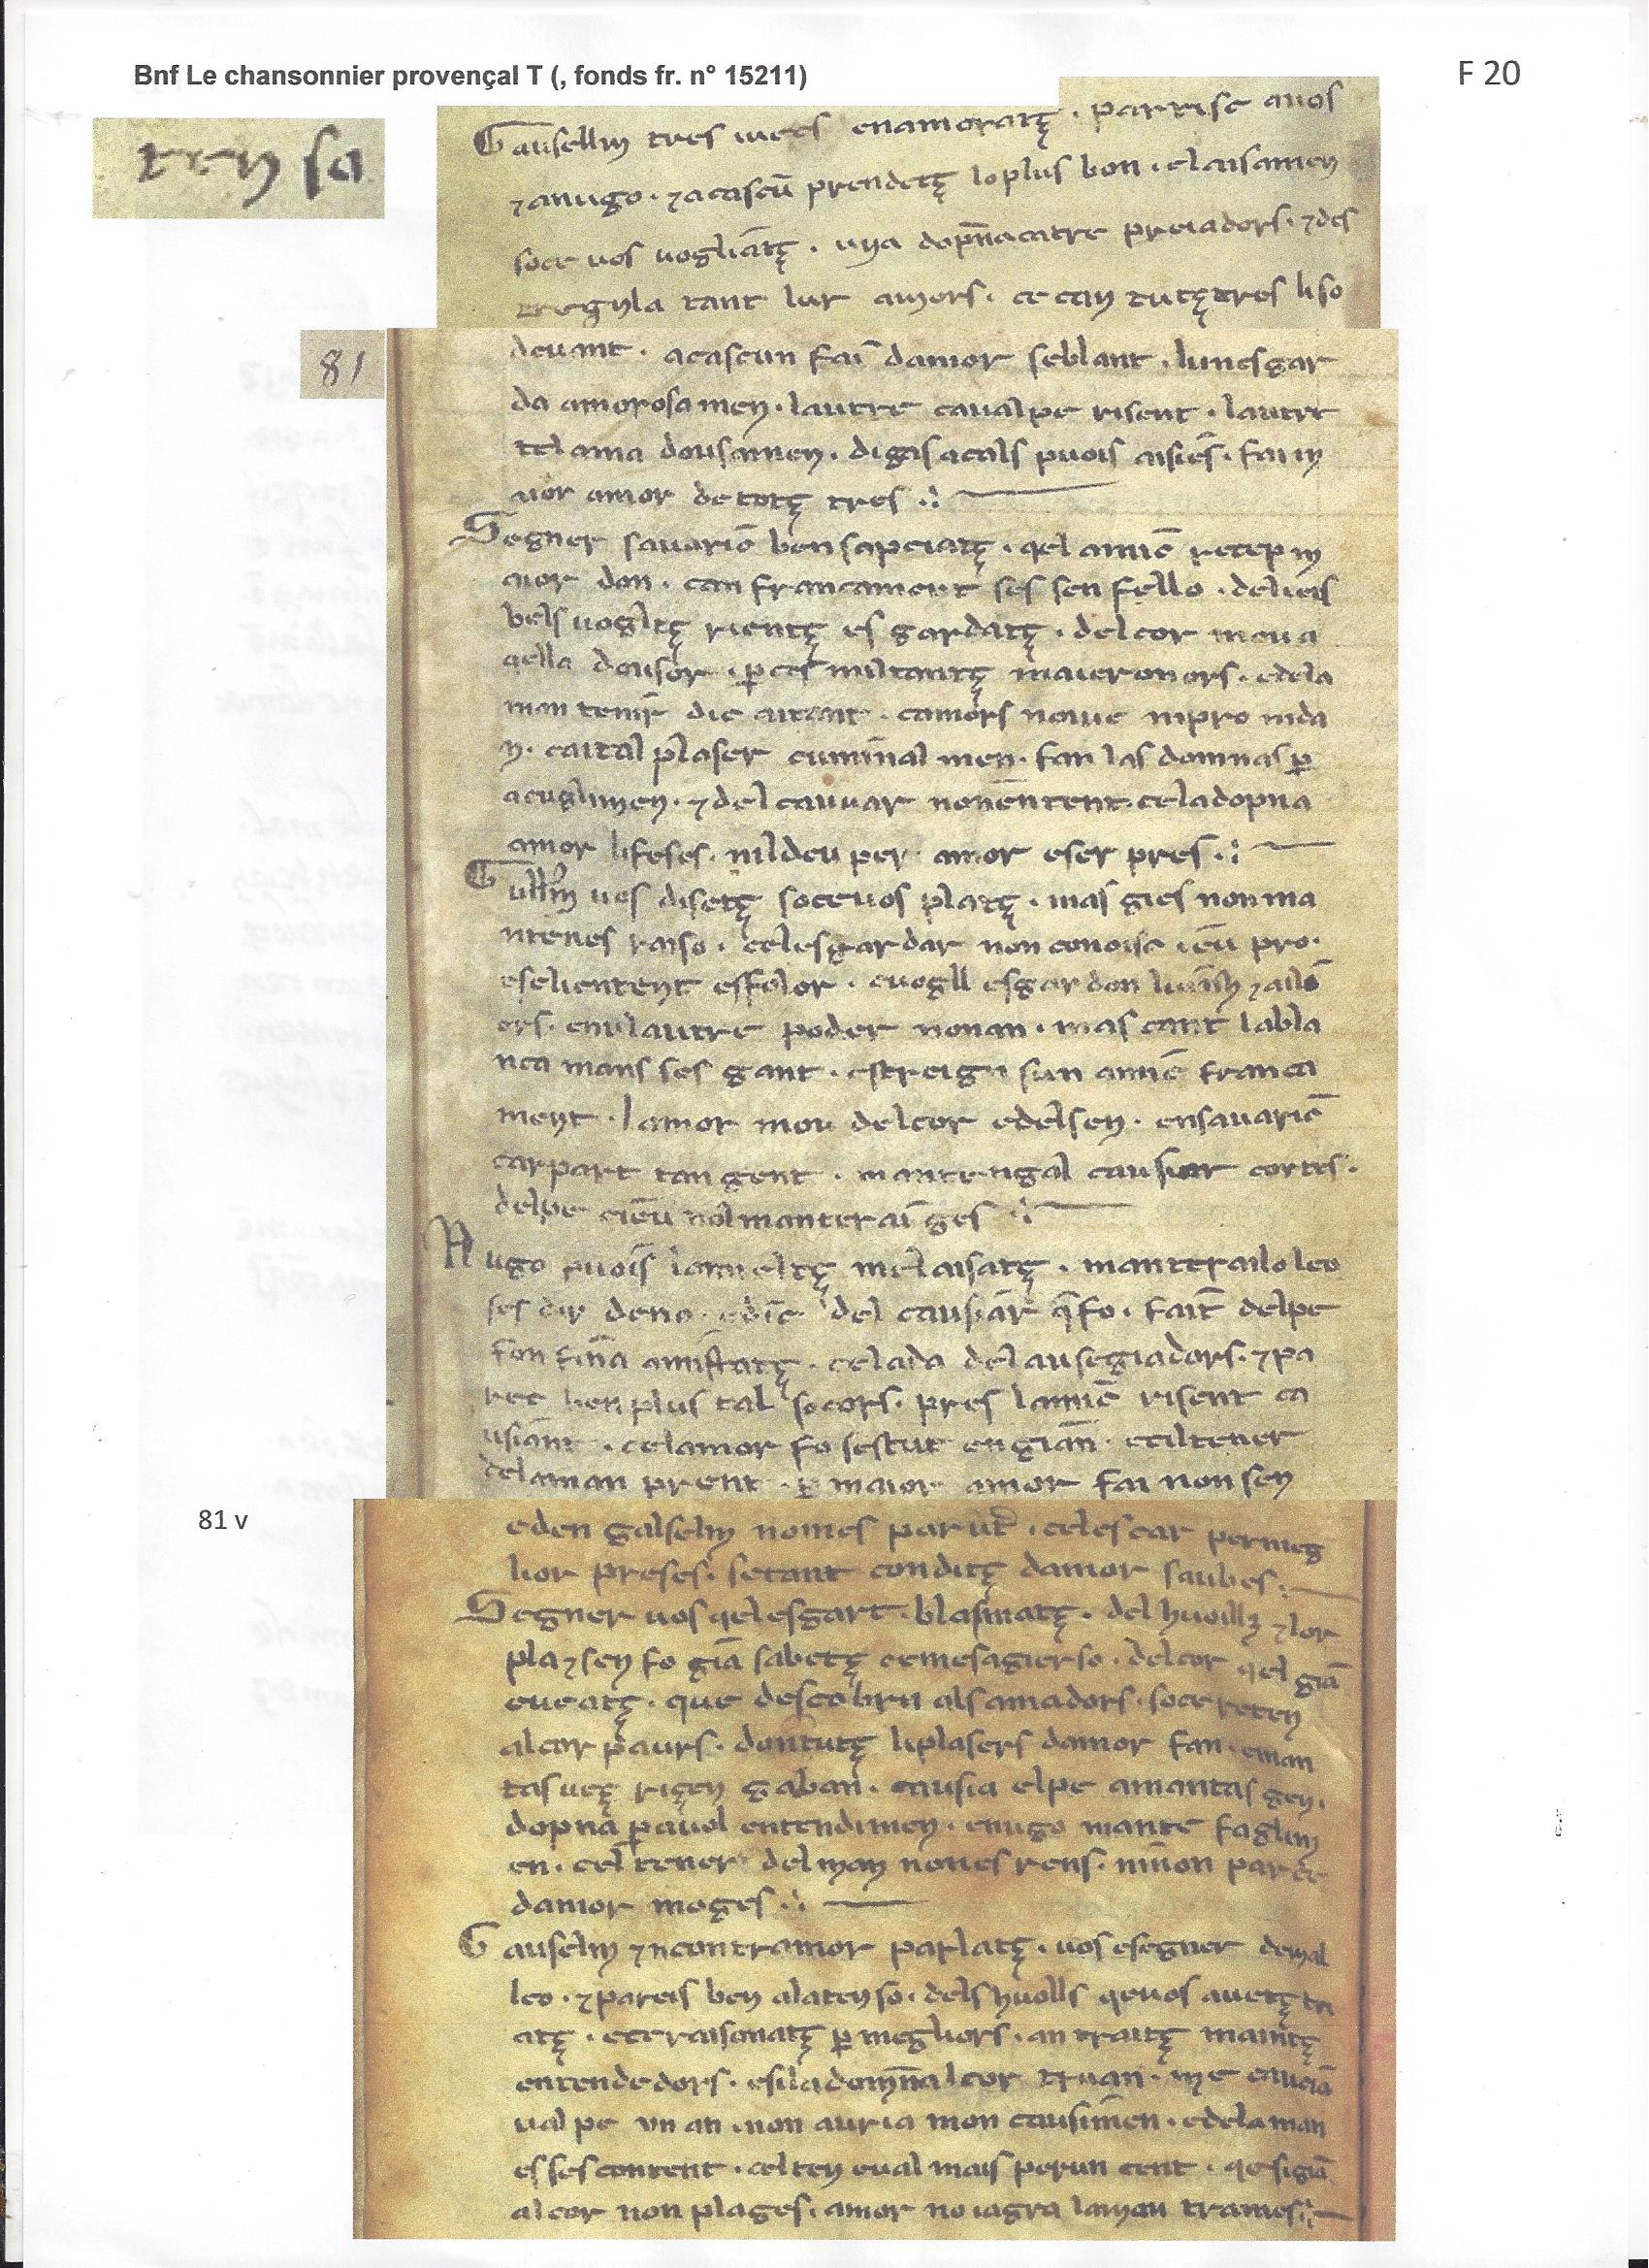 Bnf Le chansonnier provençal T (, fonds fr. n° 15211)
F 20
tenso
Gausellm tres iuecs enamoratȝ · partisc auos
⁊ anugo · ⁊ acascū prendetȝ lo plus bon · elaisamen
soce uos uogliatȝ · una dopn̄a catre preiadors · ⁊ des
tregnla tant lur amors · ce can tutȝ tres li so
81
deuant · acascun fai damor seblant · lunesgar
da amorosamen · lautre caualpe risent · lautre
tel ama dousamen · digas acals puois aisies · fai m
aior amor de totȝ tres ·:
Segner sauario ben sapciatȝ · qel amic recep m
aior don · can francament ses sen fello · delieis
bels uogltȝ rientȝ es gardatȝ · delcor mou a
qella dousor · ꝑ ces mil tantȝ maieronors · edela
man tenir dic aitant · camors noue nipro nida
n · caital plaser cuminal men · fan las domnas ꝑ
acuglimen · ⁊ del cauuar non entent celadopna
amor lifeses · nildeu per amor eser pres ·:
Gullm uos disetȝ soceuos platȝ · mas gies nonma
ntenes raiso · cel esgardar non conoisc ieu pro ·
eselientent esfolor · euogll esgardon
ors · enulautre poder nonan · mas cant labla
nca mans ses gant · estreign sun amic franca
ment · lamor mou delcor edelsen · ensauario
carpart tan gent · mantengal causiar cortes ·
delpe cieu nol manterai ges ·:
Nugo puois laisatȝ · manterailo leo
ses dir deno · edic del causiar qe fo · fait delpe
fon fina amistatȝ · celada delausegiadors · ⁊ pa
rec ben plus tal socors · pres lamic risent ca
usiant · celamor fo sescut engian · ecil tener
delaman prent · ꝑ maior amor fai non sen
81 v
eden galselm nomes paruē · celescar permeg
lior preses · setant conditȝ damor saubes ·:
Segner uos qelesgart · blasmatȝ · del huoillȝ ⁊ lor
pla ⁊ sen fo gia sabetȝ ce mesagier so · delcor qel gia
eueatȝ · que descobrn als amadors · soce reten
alcor paurs · dontutȝ liplasers damor fan · eman
tas uetȝ rigen gaban · causia elpe amantas gen ·
dopna ꝑ auol entendimen · enugo mante faglim
en · cel tener delman noues rens · ninon par de
damor moges ·:
Gauselm ⁊ ncontramor parlatȝ · uos esegner demal
leo · ⁊ pareis ben alatenso · dels huolls qeuos auetȝ tri
atȝ · ece raisonatȝ ꝑ megliors · an traitȝ maintȝ
entendedors · esiladomn̄alcor truan · me caucia
ual pe un an · non auria mon causimen · edelaman
es ses content · celten eual mais perun cent · qe sigia
alcor non plages · amor noiagra laman trames ·: